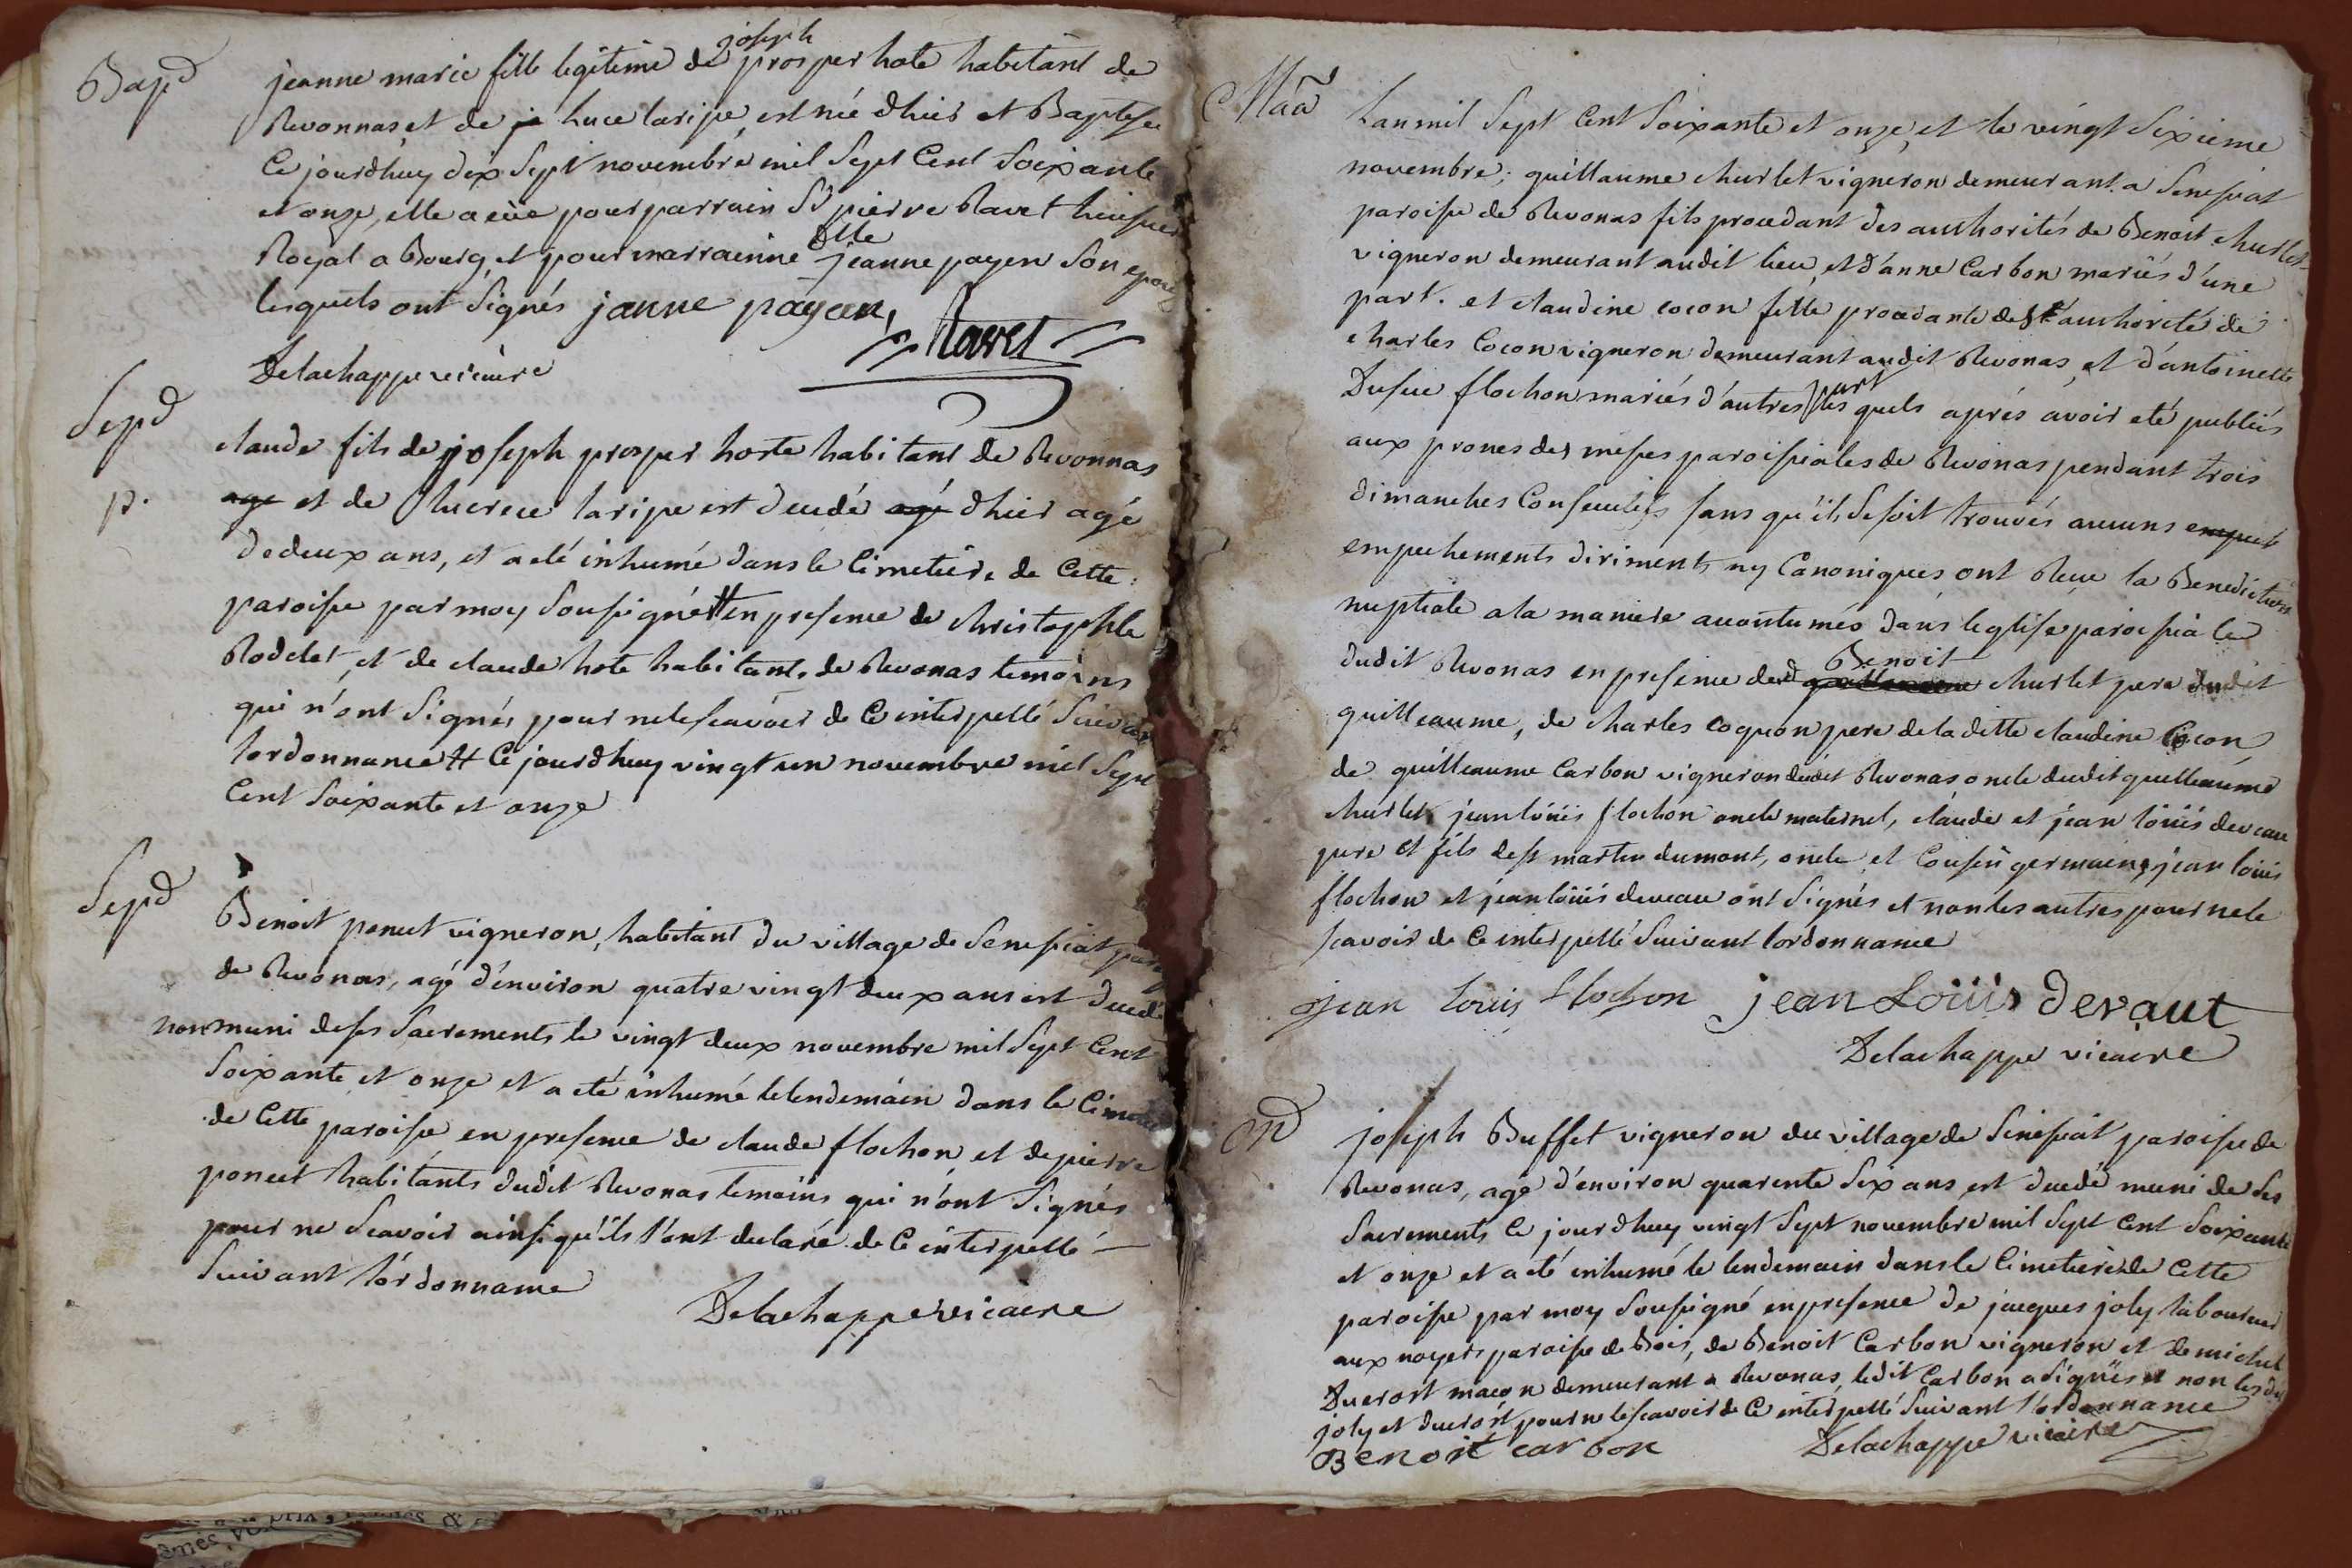 Bapd
joseph
jeanne marie fille legitime de prosper hote habitant de
Revonnas et de je Luce laripe est née dhier et Baptisée
Ce jourdhuy dix Sept novembre mil Sept Cent Soixante
et onze, elle a eüe pour parrain Sr pierre Ravet huissier
Dlle
Royal a Bourg et pour marrainne jeanne payen Son epouse
lesquels ont Signés janne payen,
Ravet
Delachappe vicaire
Sepd
p.
claude fils de joseph prosper hoste habitant de Revonnas
age et de Lucrece laripe est decedé agé dhier agé
de deux ans, et a eté inhumé dans le Cimetiere de Cette
paroisse par moy Soussigné # en presence de christophle
Rodelet, et de claude hote habitants de Revonas temoins
qui n'ont Signés pour ne le scavoir de Ce interpellé Suivant
lordonnance # Ce jourdhuy vingt un novembre mil Sept
Cent Soixante et onze
Sepd
Benoit poncet vigneron, habitant du village de Senissiat
de Revonas, agé d'environ quatre vingt deux ans est decedé
non muni de ses Sacrements le vingt deux novembre mil Sept Cent
Soixante et onze et a eté inhumé le lendemain dans le
de Cette paroisse en presence de claude flochon et de pierre
poncet habitants dudit Revonas temoins qui n'ont Signés
pour ne Scavoir ainsi qu'ils l'ont declaré de Ce interpellé
Suivant l'ordonnance
Delachappe vicaire
Maā
Lan mil Sept Cent Soixante et onze, et le vingt Sixieme
novembre; guillaume churlet vigneron demeurant a Senissiat
paroisse de Revonas fils procedant des authorités de Benoit churlet
vigneron demeurant audit lieu et d'anne Carbon mariés d'une
part. et claudine cocon fille procedante de l'authorité de
charles Cocon vigneron demeurant audit Revonas, et d'antoinette
part
flochon mariés d'autres lesquels aprés avoir eté publiés
aux prones des messes paroissiales de Revonas pendant trois
dimanches Consecutifs sans qu'il se soit trouvés aucuns empech
empechements diriments ny Canoniques ont Reçu la Benediction
nuptiale a la maniere accoutumés dans leglise paroissiale
Benoit
dudit Revonas en presence dud guillaume churlet pere dudit
guilleaume, de charles coquon pere de la ditte claudine Cocon,
de guilleaume Carbon vigneron dudit Revonas oncle dudit guilleaume
churlet, jean loüis flochon oncle maternel, claude et jean loüis deveau
pere et fils de st martin dumont, oncle et Cousin germains, jean loüis
flochon et jean loüis deveau ont Signés et non les autres pour ne le
scavoir de Ce interpellé Suivant lordonnance
jean louis flochon jean Loüis devaut
Delachappe vicaire
joseph Buffet vigneron du village de Senissiat paroisse de
Revonas, agé d'environ quarente Six ans est decedé muni de Ses
Sacrements Ce jourdhuy vingt Sept novembre mil Sept Cent Soixante
et onze et a eté inhumé le lendemain dans le Cimetiere de Cette
paroisse par moy Soussigné en presence de jacques joly laboureur
aux noyers paroisse de Bois, de Benoit Carbon vigneron et de michel
Duerost maçon demeurant a Revonas, ledit Carbon a Signé et non les dit
joly et duerost pour ne le scavoir de Ce interpellé Suivant l'ordonnance
Benoit carbon Delachappe vicaire